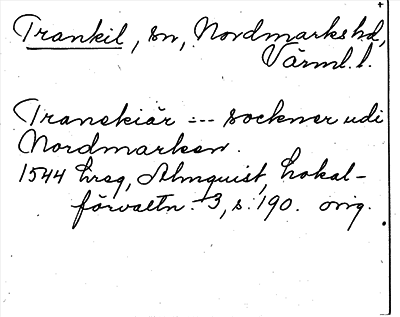 Trankil, sn, Nordmarks hd,
Värml. l.
Transkiär --- sockner udi
Nordmarken.
1544 hreg, Almquist, Lokal-
förvaltn. 3, s. 190. orig.